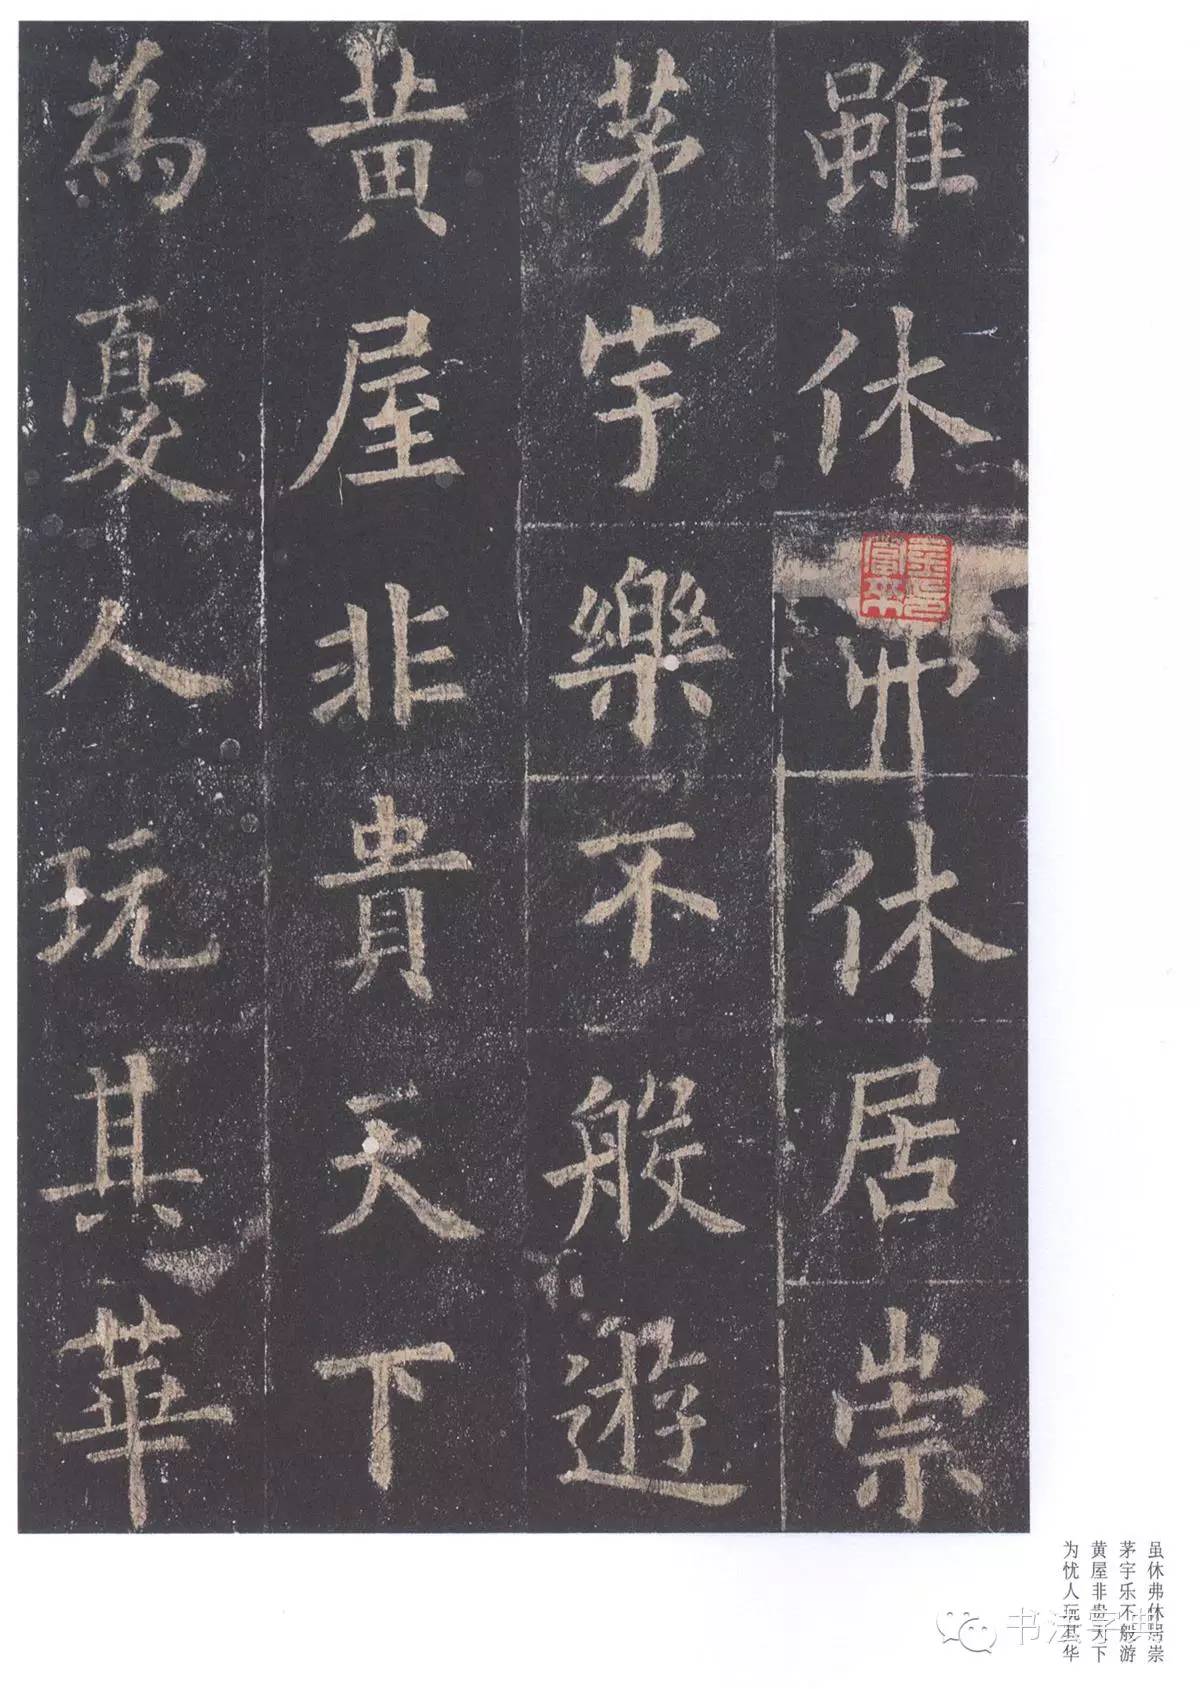 雖休弗休居崇
茅宇樂不般遊
黄屋非貴天下
為憂人玩其華
虽休弗休居崇
茅宇乐不般游
黄屋非贵天下
为忧人玩其华
书法字典